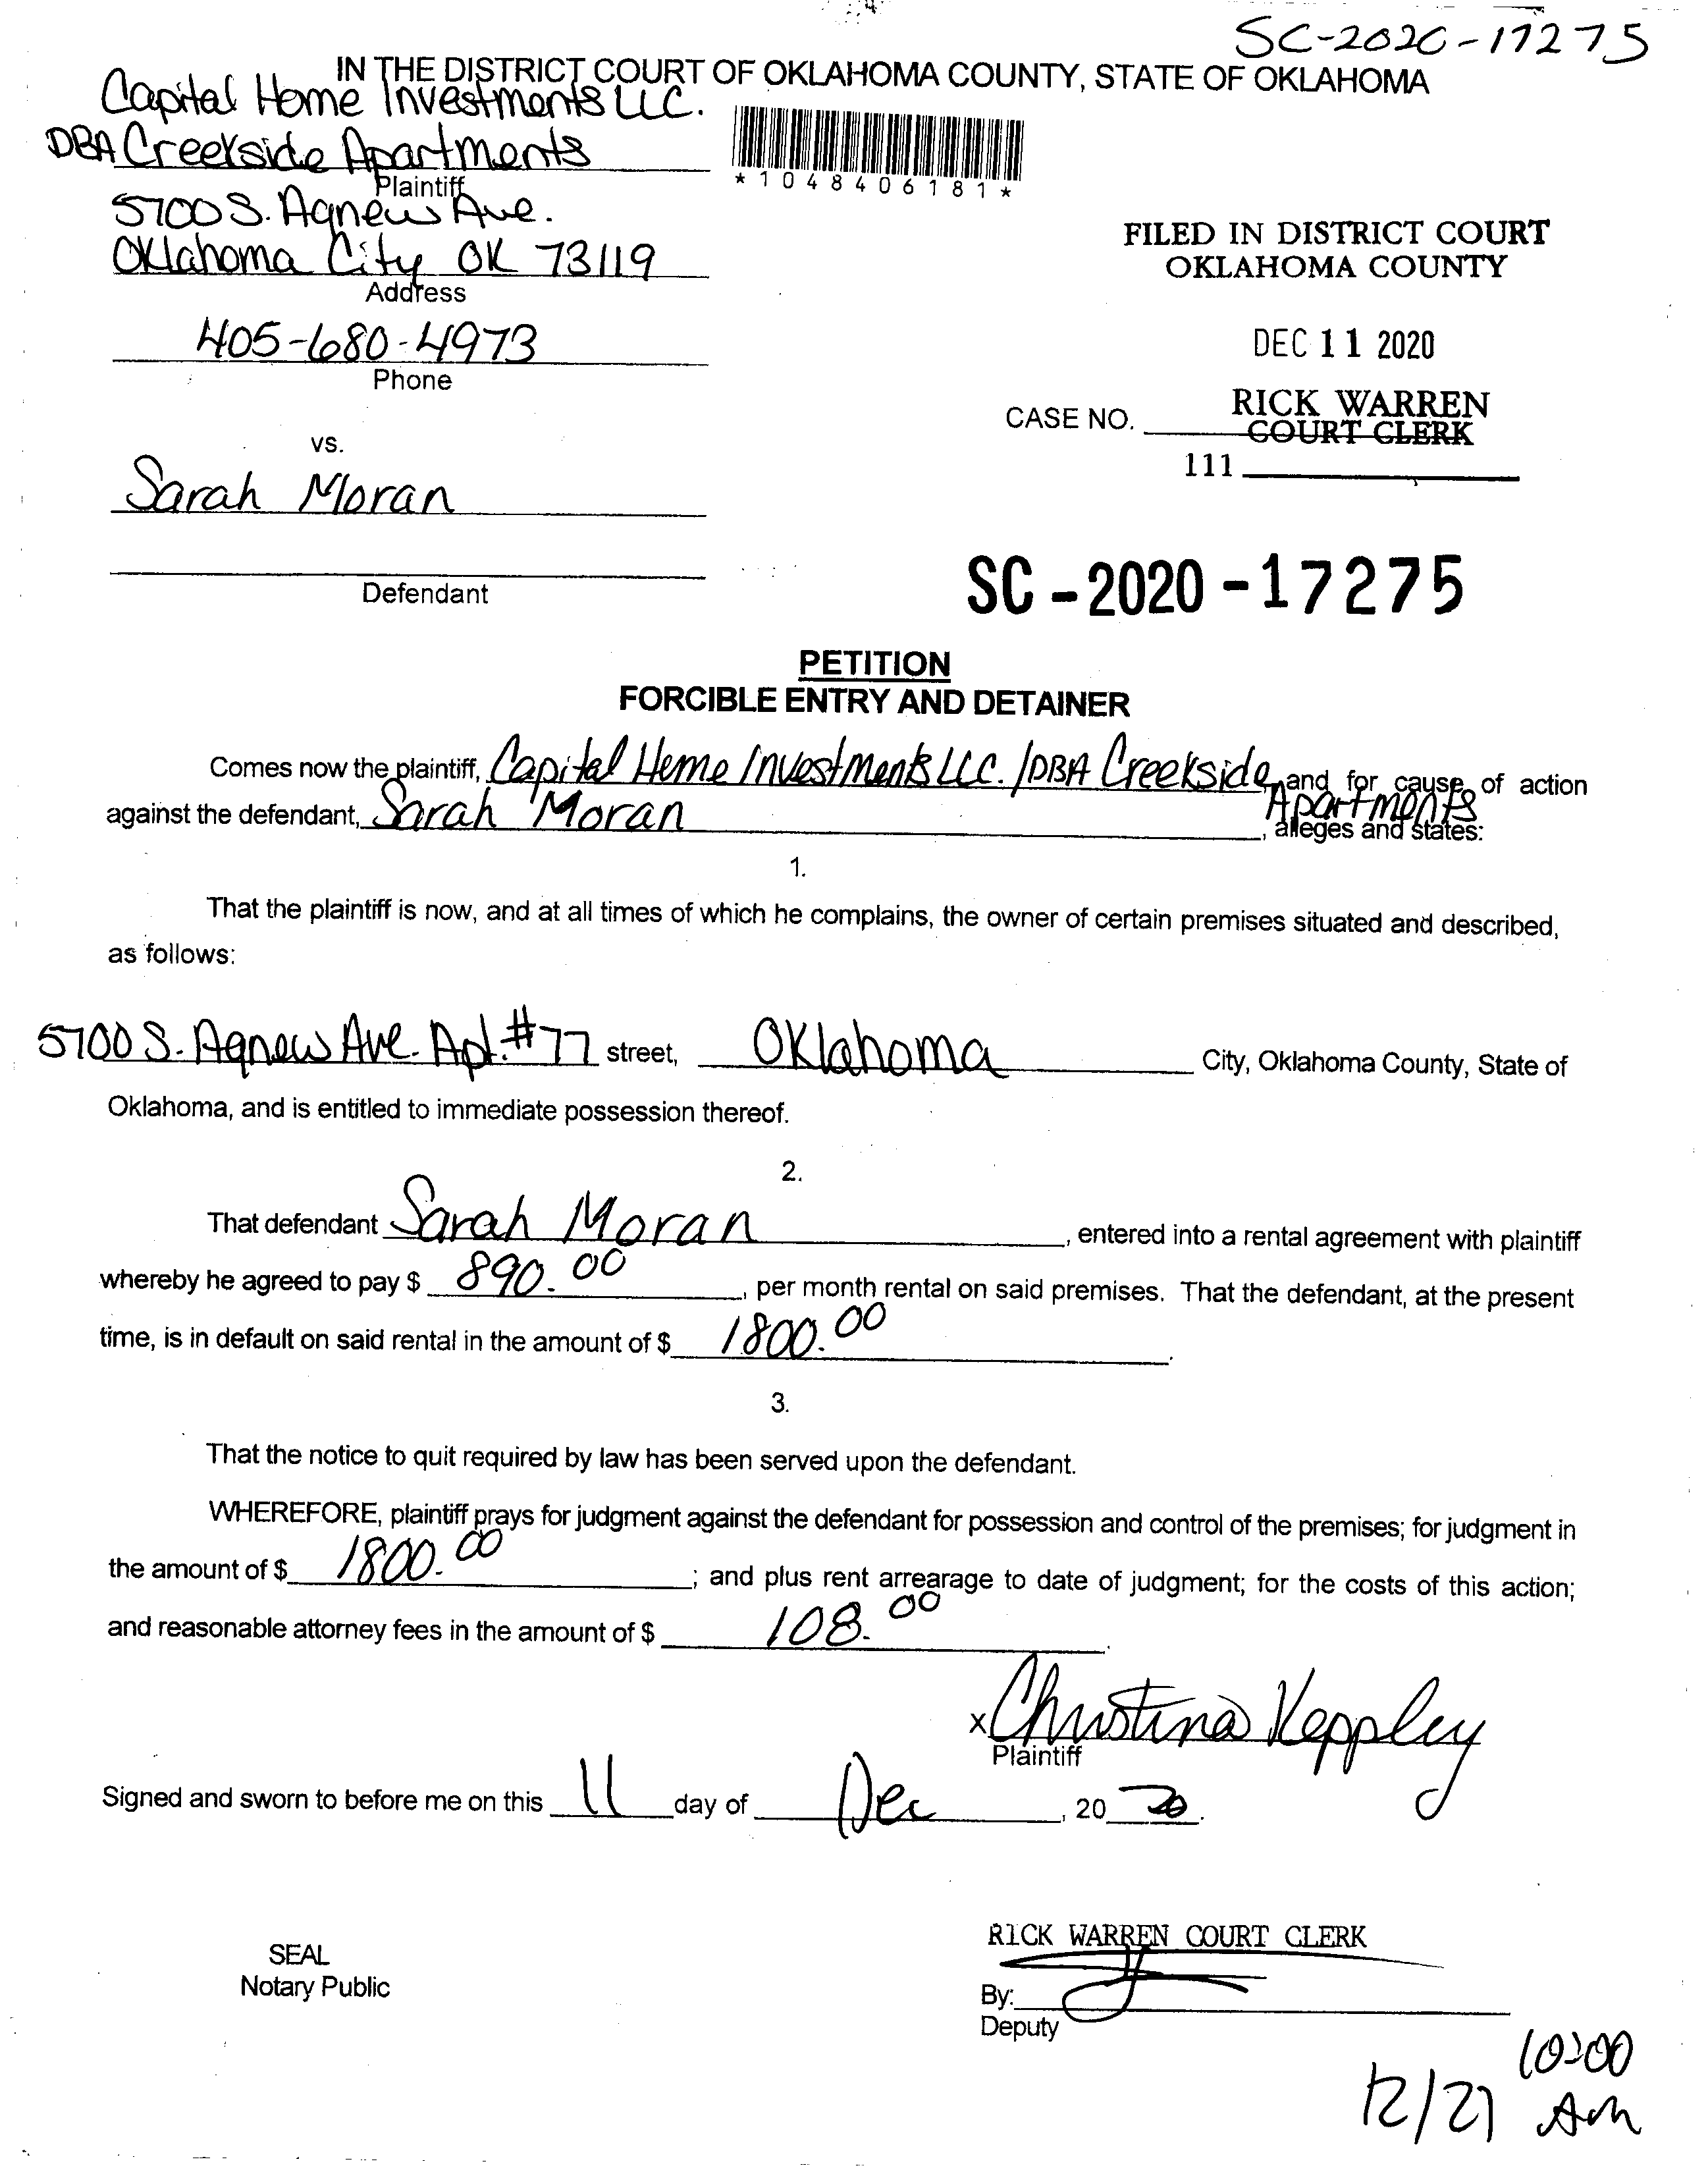 SC-2020-17275
IN THE DISTRICT COURT OF OKLAHOMA COUNTY, STATE OF OKLAHOMA
Capital Home Investments LLC.
DBA Creekside Apartments
Plaintiff
*1048406181*
5700 S. Agnew Ave.
Oklahoma City OK 73119
Address
FILED IN DISTRICT COURT
OKLAHOMA COUNTY
405-680-4973
Phone
DEC 11 2020
RICK WARREN
CASE NO.
COURT CLERK
111
vs.
Sarah Moran
Defendant
SC-2020-17275
PETITION
FORCIBLE ENTRY AND DETAINER
Comes now the plaintiff, Capital Home Investments LLC. /DBA Creekside Apartments, and for cause of action
against the defendant, Sarah Moran, alleges and states:
1.
That the plaintiff is now, and at all times of which he complains, the owner of certain premises situated and described,
as follows:
5700 S. Agnew Ave. Apt. #77 street, Oklahoma City, Oklahoma County, State of
Oklahoma, and is entitled to immediate possession thereof.
2.
That defendant Sarah Moran, entered into a rental agreement with plaintiff
whereby he agreed to pay $ 890.00, per month rental on said premises. That the defendant, at the present
time, is in default on said rental in the amount of $ 1800.00.
3.
That the notice to quit required by law has been served upon the defendant.
WHEREFORE, plaintiff prays for judgment against the defendant for possession and control of the premises; for judgment in
the amount of $ 1800.00; and plus rent arrearage to date of judgment; for the costs of this action;
and reasonable attorney fees in the amount of $ 108.00.
x Christina Keppley
Plaintiff
Signed and sworn to before me on this 11 day of Dec, 20 20.
RICK WARREN COURT CLERK
SEAL
Notary Public
By:
Deputy
12/21 10:00 Am